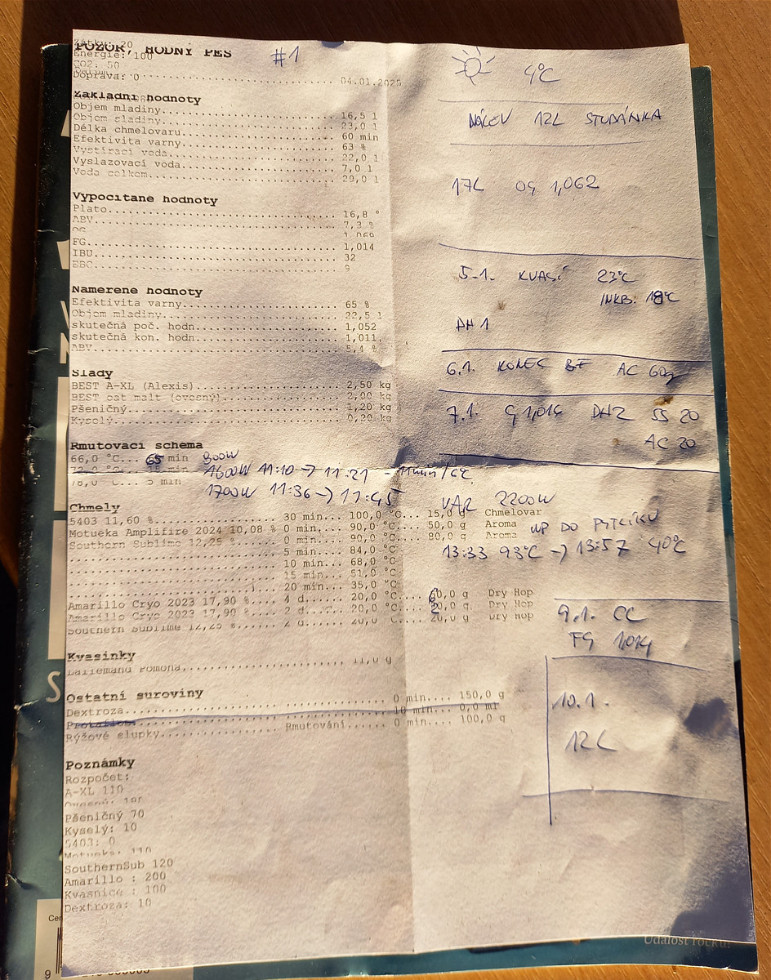 POZOR, HODNÝ PES
#1
Energie: 100
CO2: 50
Doprava: 0
04.01.2025
Základní hodnoty
Objem mladiny 16,5 l
Objem sladiny 23,0 l
Délka chmelovaru 60 min
Efektivita varny 63 %
Vystírací voda 22,0 l
Vyslazovací voda 7,0 l
Voda celkem 29,0 l
Vypočítané hodnoty
Plato 16,8 °
ABV 7,3 %
OG
FG 1,014
IBU 32
EBC 9
Naměřené hodnoty
Efektivita varny 65 %
Objem mladiny 22,5 l
skutečná poč. hodn. 1,052
skutečná kon. hodn. 1,011
ABV 5,4 %
Slady
BEST A-XL (Alexis) 2,50 kg
BEST oat malt (ovesný) 2,00 kg
Pšeničný 1,20 kg
Kyselý 0,20 kg
Rmutovací schema
66,0 °C... 65 min 800W
1600W 11:10 → 11:21
78,0 °C... 5 min 1700W 11:36 → 11:45
Chmely
5403 11,60 % 30 min... 100,0 °C... 15,0 g Chmelovar
Motueka Amplifire 2024 10,08 % 0 min... 90,0 °C... 50,0 g Aroma
Southern Sublime 12,25 % 0 min... 90,0 °C... 80,0 g Aroma
5 min 84,0 °C
10 min 68,0 °C
15 min 51,0 °C
20 min 35,0 °C
Amarillo Cryo 2023 17,90 % 4 d... 20,0 °C... 60,0 g Dry Hop
Amarillo Cryo 2023 17,90 % 2 d... 20,0 °C... 20,0 g Dry Hop
Southern Sublime 12,25 % 2 d... 20,0 °C... 20,0 g Dry Hop
Kvasinky
Lallemand Pomona 11,0 g
Ostatní suroviny
Dextroza 0 min.... 150,0 g
Protafloc 10 min... 0,0 ml
Rýžové slupky Rmutování 0 min.... 100,0 g
Poznámky
Rozpočet:
A-XL 110
Pšeničný 70
Kyselý: 10
5403: 0
SouthernSub 120
Amarillo : 200
Kvasnice : 100
Dextroza: 10
4°C
NÁLEV 12L STUDÁNKA
17L OG 1,062
5.1. KVASÍ 23°C
INKB: 18°C
DH 1
6.1. KONEC BF AC 60g
7.1. G 1,014 DH2 SS 20
AC 20
VAR 2200W
13:33 93°C → 13:57 40°C
9.1. CC
FG 1,014
10.1.
12L
Událost roku